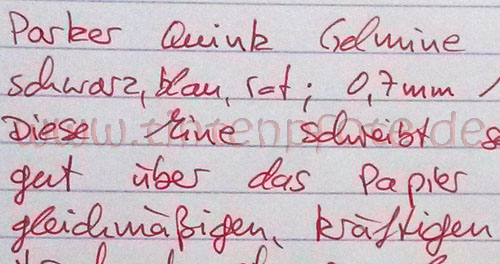 Parker Quink Gelmine
schwarz, blau, rot; 0,7mm /
Diese Mine schreibt s
gut über das Papier
gleichmäßigen, kräftigen
www.tintenpfote.de